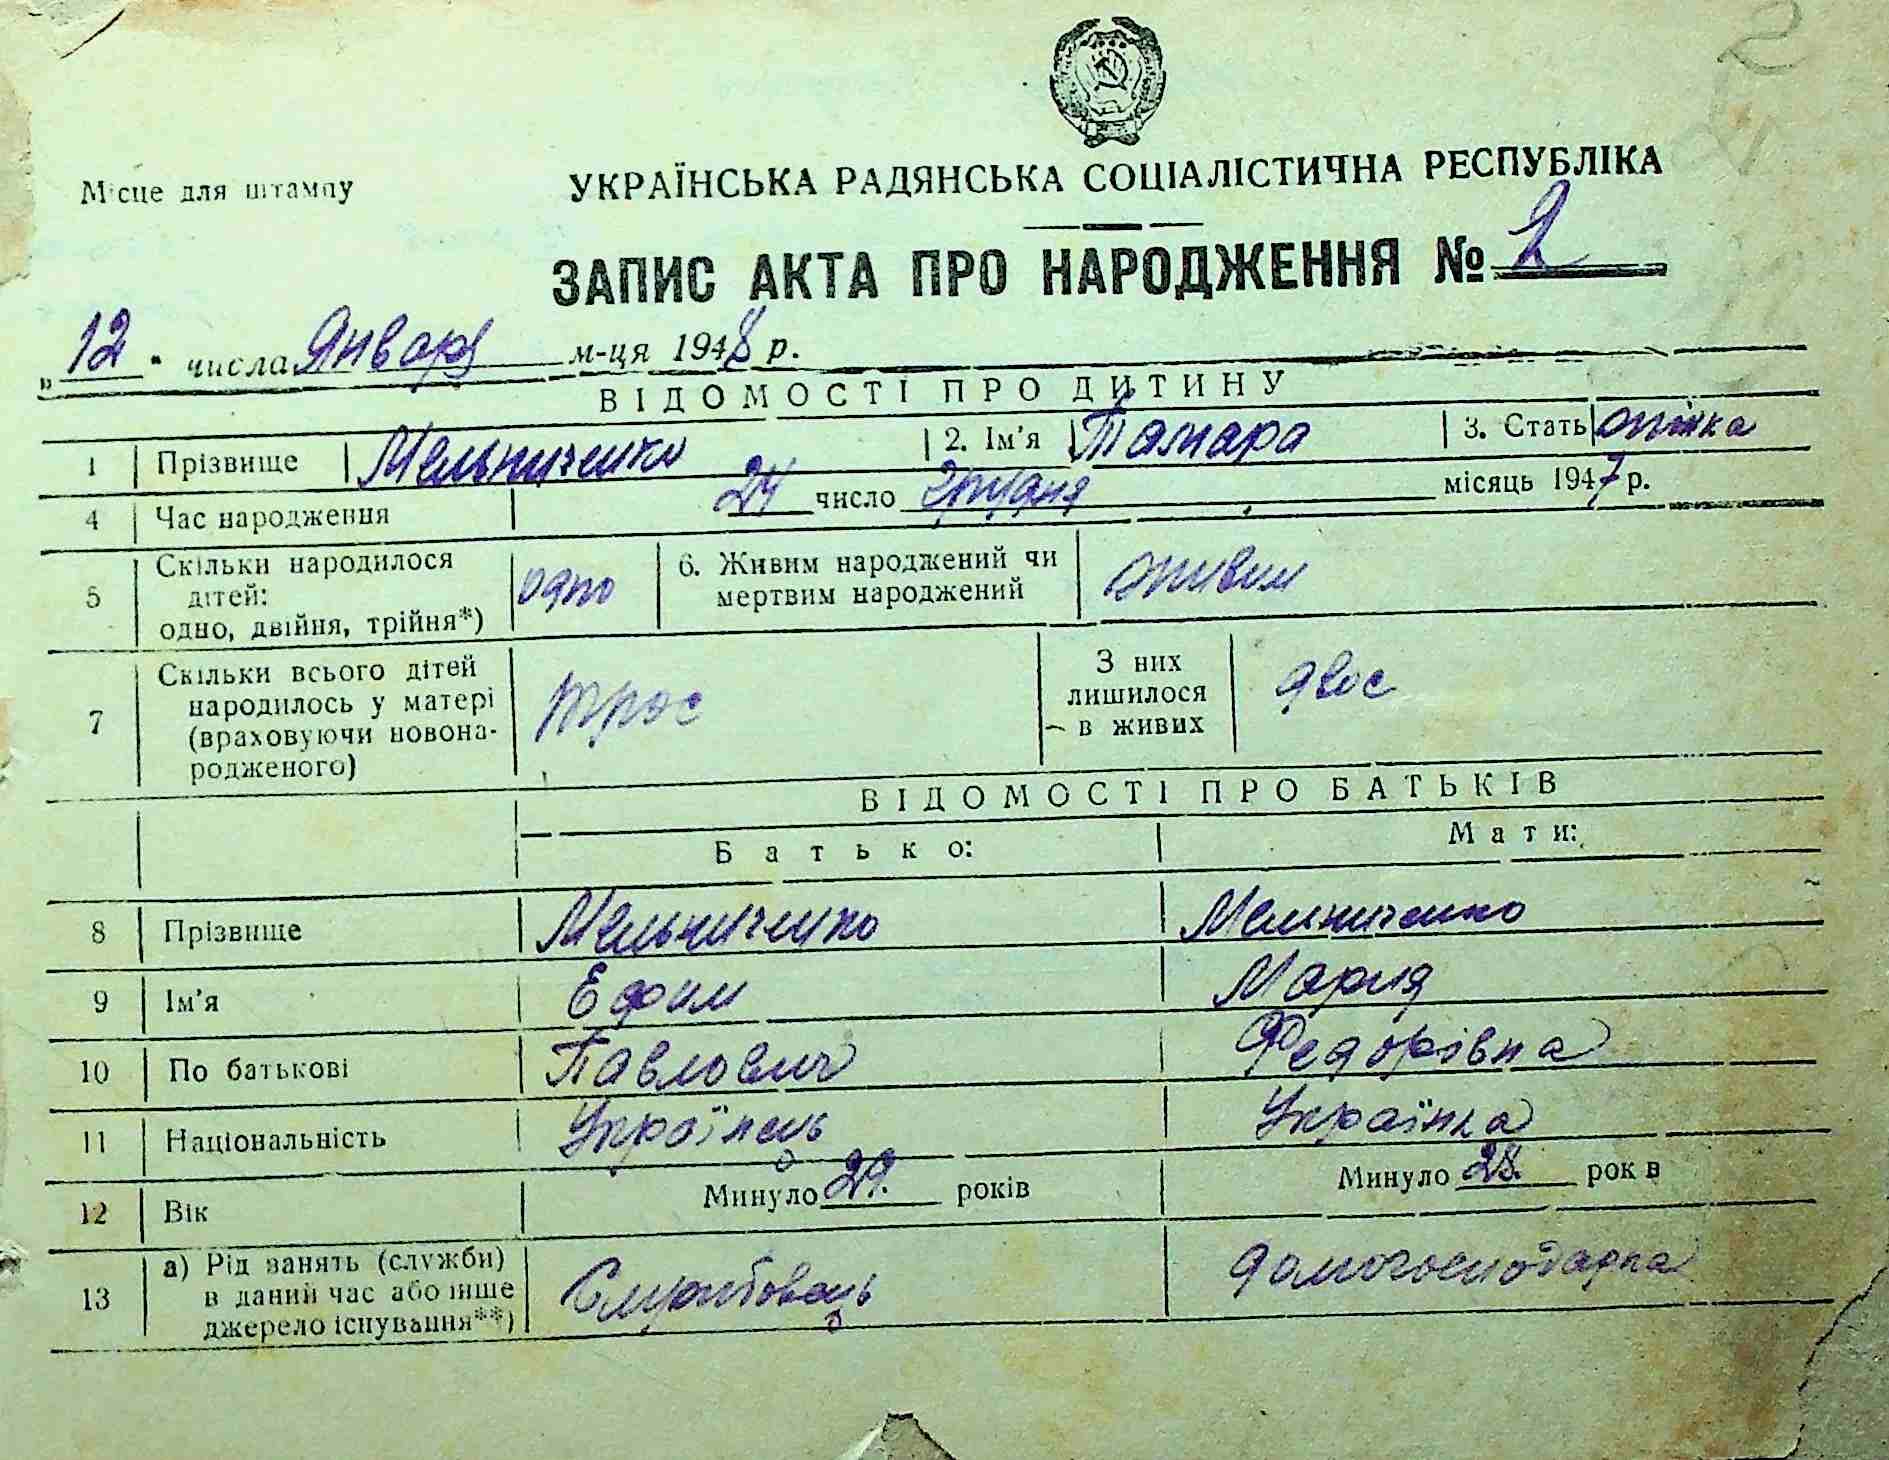 Місце для штампу
УКРАЇНСЬКА РАДЯНСЬКА СОЦІАЛІСТИЧНА РЕСПУБЛІКА
ЗАПИС АКТА ПРО НАРОДЖЕННЯ № 2
„12“ числа Января м-ця 1948 р.
ВІДОМОСТІ ПРО ДИТИНУ
1 Прізвище Мельниченко 2. Ім'я Тамара 3. Стать жінка
4 Час народження 24 число грудня місяць 1947 р.
5 Скільки народилося дітей: одно, двійня, трійня*) одно 6. Живим народжений чи мертвим народжений живим
7 Скільки всього дітей народилось у матері (враховуючи новонародженого) троє З них лишилося в живих двоє
ВІДОМОСТІ ПРО БАТЬКІВ
Батько: Мати:
8 Прізвище Мельниченко Мельниченко
9 Ім'я Ефим Мария
10 По батькові Павлович Федорівна
11 Національність Українець Українка
12 Вік Минуло 29. років Минуло 28. років
13 а) Рід занять (служби) в даний час або інше джерело існування**) Службовець домогосподарка